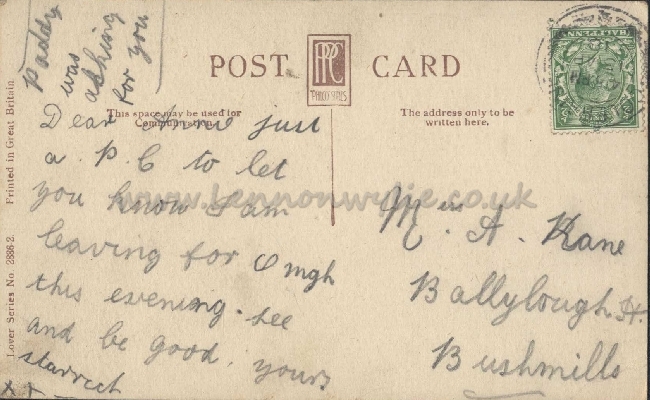 Paddy
was
asking
for you
POST CARD
PPC
HALFPENNY
This space may be used for
Communication.
The address only to be
written here.
Dear Annie just
a P.C to let
you know I am
leaving for Omgh
this evening. Hee
and be good. yours
starrect
x x
Miss A. Kane
Ballylough H.
Bushmills
www.lennonwylie.co.uk
Lover Series No 2886-2. Printed in Great Britain.